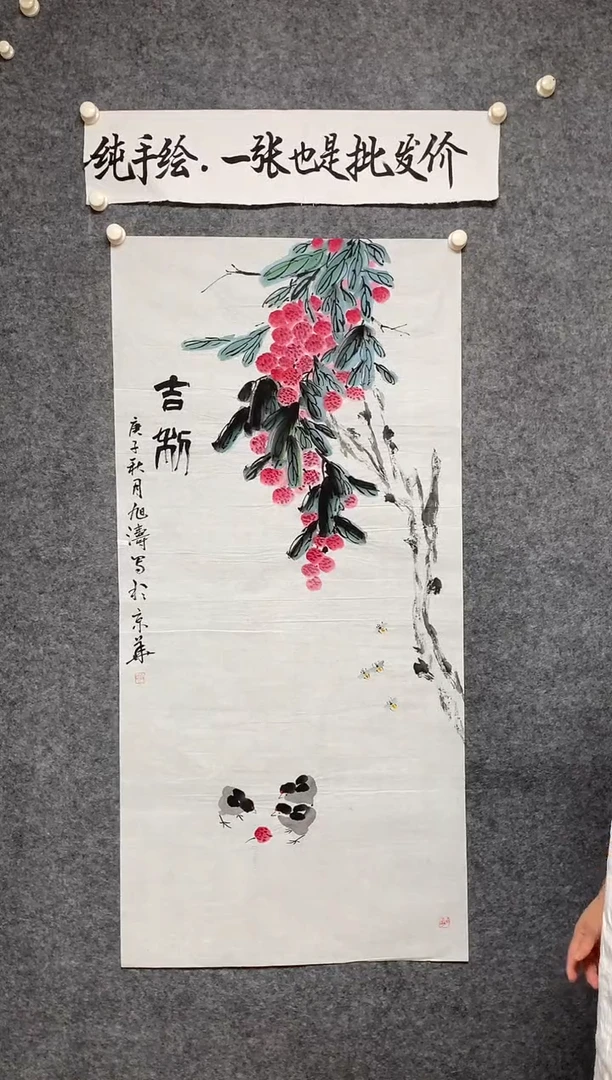 纯手绘.一张也是批发价
吉
庚子秋月旭涛写于京华